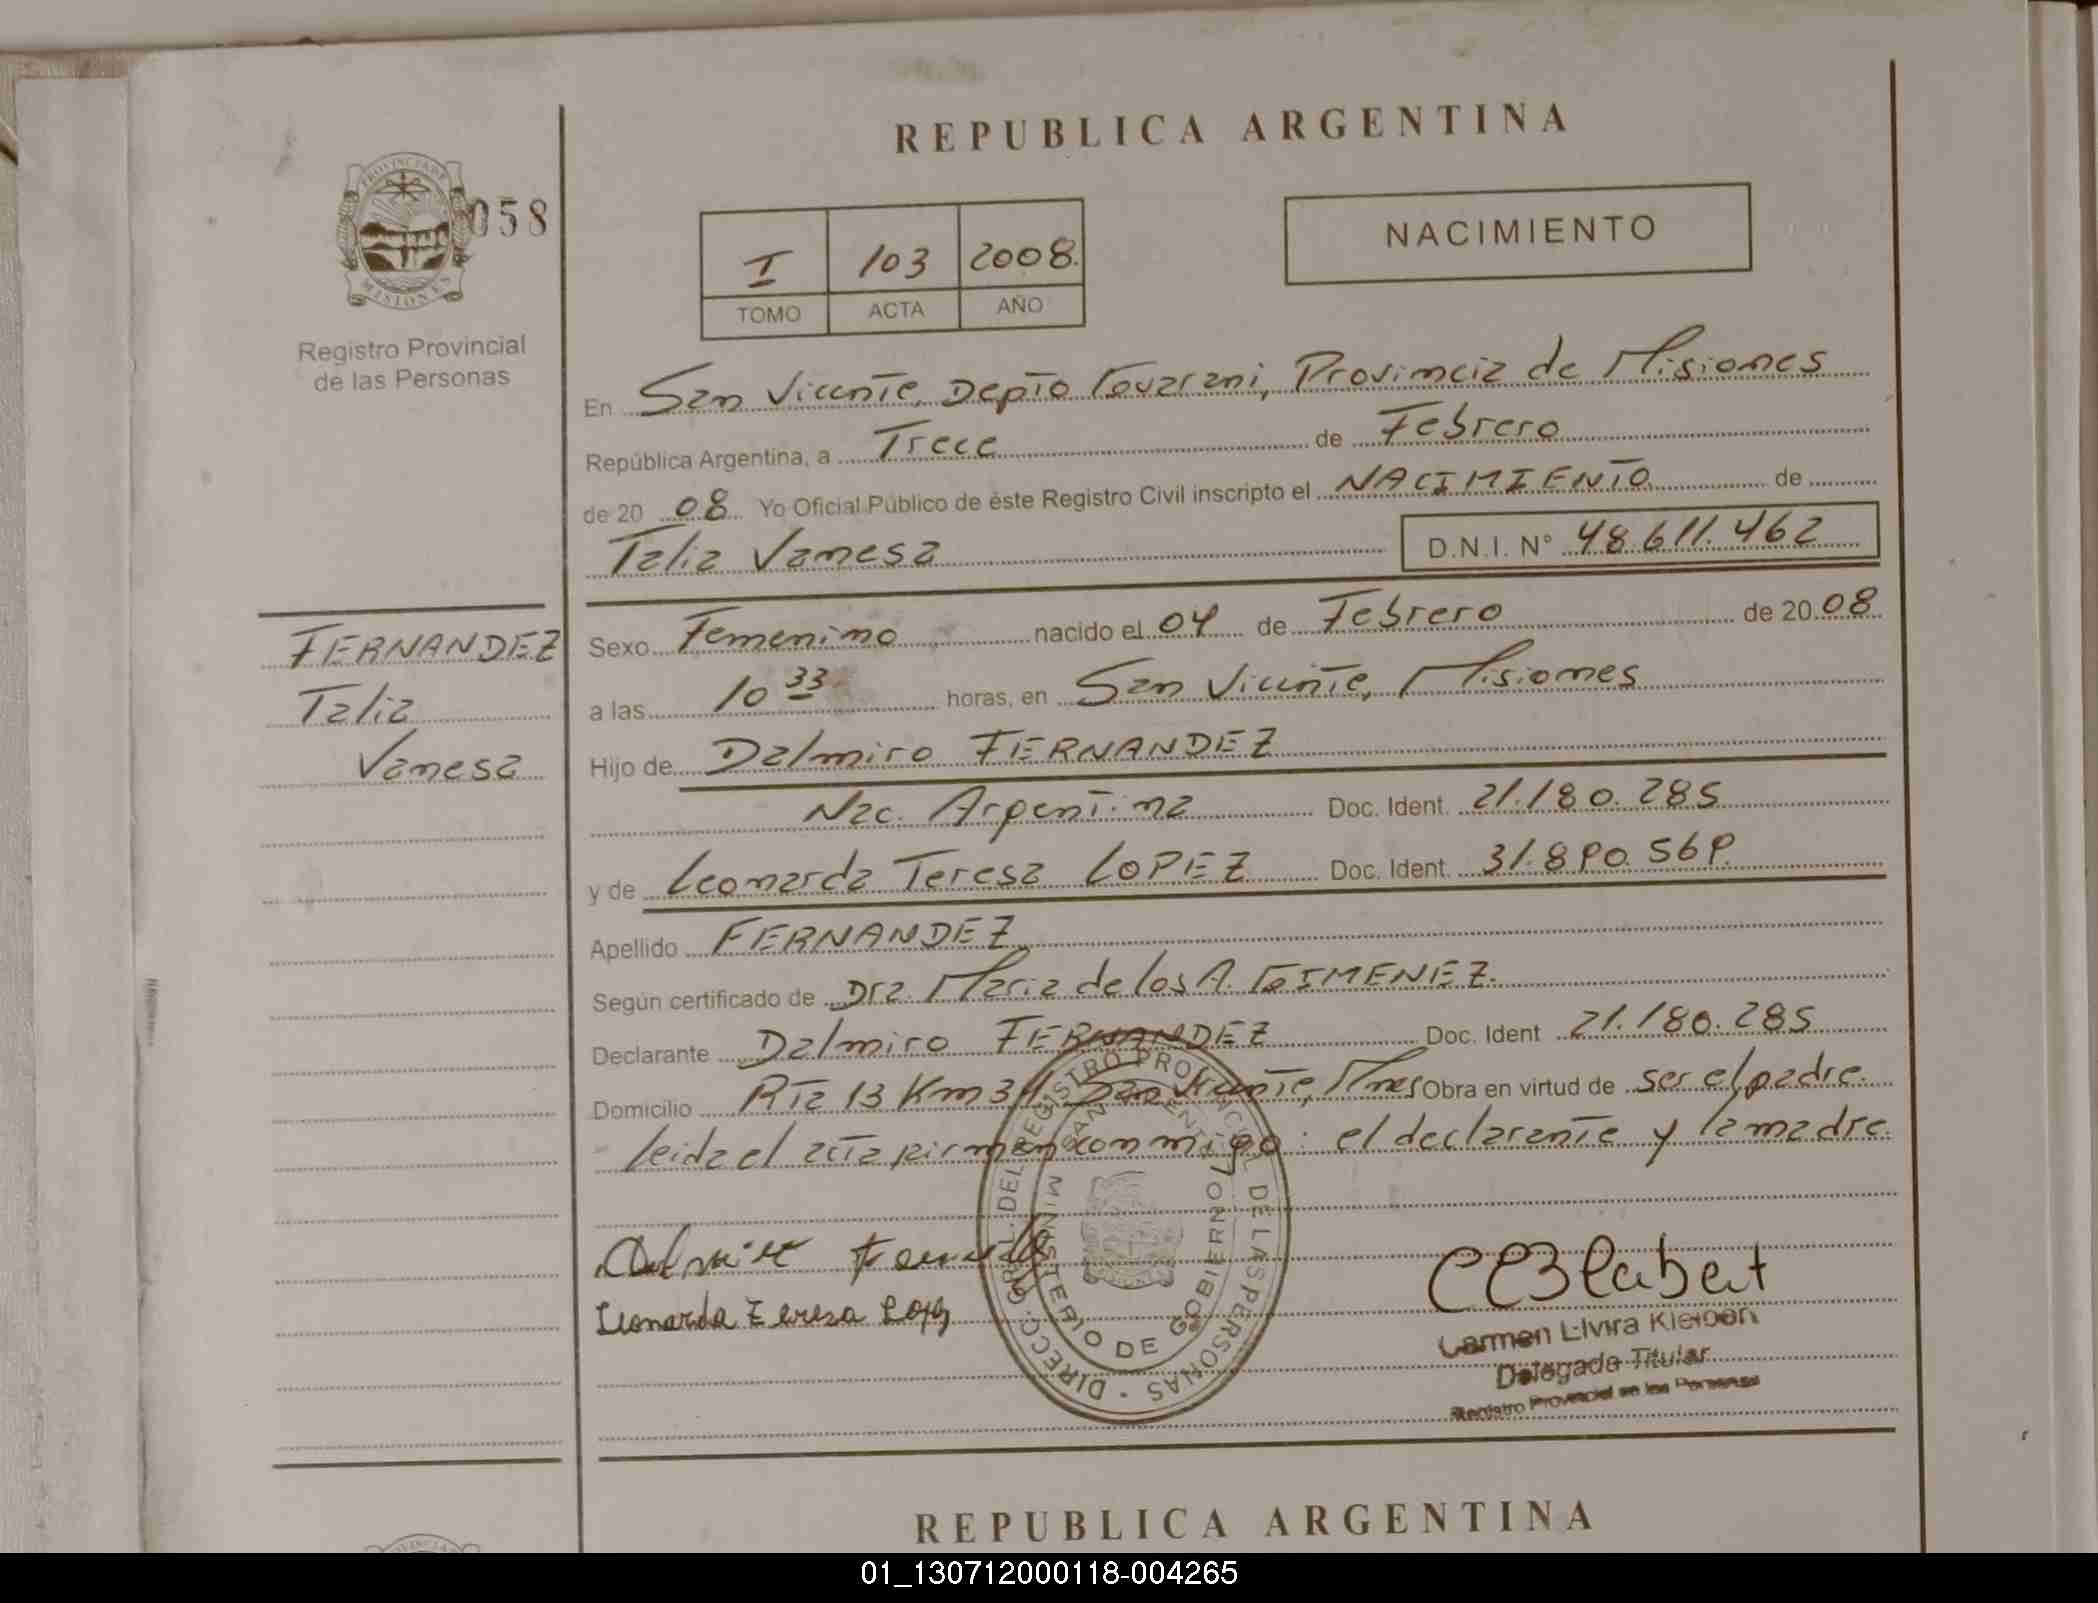 REPUBLICA ARGENTINA
PROVINCIA DE
MISIONES
058
Registro Provincial
de las Personas
I 103 2008.
TOMO ACTA AÑO
NACIMIENTO
En San Vicente, Depto Guarani, Provincia de Misiones
República Argentina, a Trece de Febrero
de 20 08 Yo Oficial Público de éste Registro Civil inscripto el NACIMIENTO de
Talia Vanesa D.N.I. Nº 48.611.462
FERNANDEZ
Talia
Vanesa
Sexo Femenino nacido el 04 de Febrero de 20 08
a las 10 33 horas, en San Vicente, Misiones
Hijo de Dalmiro FERNANDEZ
Nac. Argentina Doc. Ident. 21.180.285
y de Leonarda Teresa LOPEZ Doc. Ident. 31.890.569.
Apellido FERNANDEZ
Según certificado de Dra. Maria de los A. GIMENEZ.
Declarante Dalmiro FERNANDEZ Doc. Ident 21.180.285
Domicilio Rta 13 Km 34 San Vicente, Mnes Obra en virtud de ser el padre.
Leida el acta firman conmigo: el declarante y la madre.
DIRECC. GRAL. DEL REGISTRO PROVINCIAL DE LAS PERSONAS
MINISTERIO DE GOBIERNO
SAN VICENTE
MISIONES
Leonarda Teresa Lopez
Carmen Elvira Kleiben
Delegada Titular
Registro Provincial de las Personas
REPUBLICA ARGENTINA
01_130712000118-004265